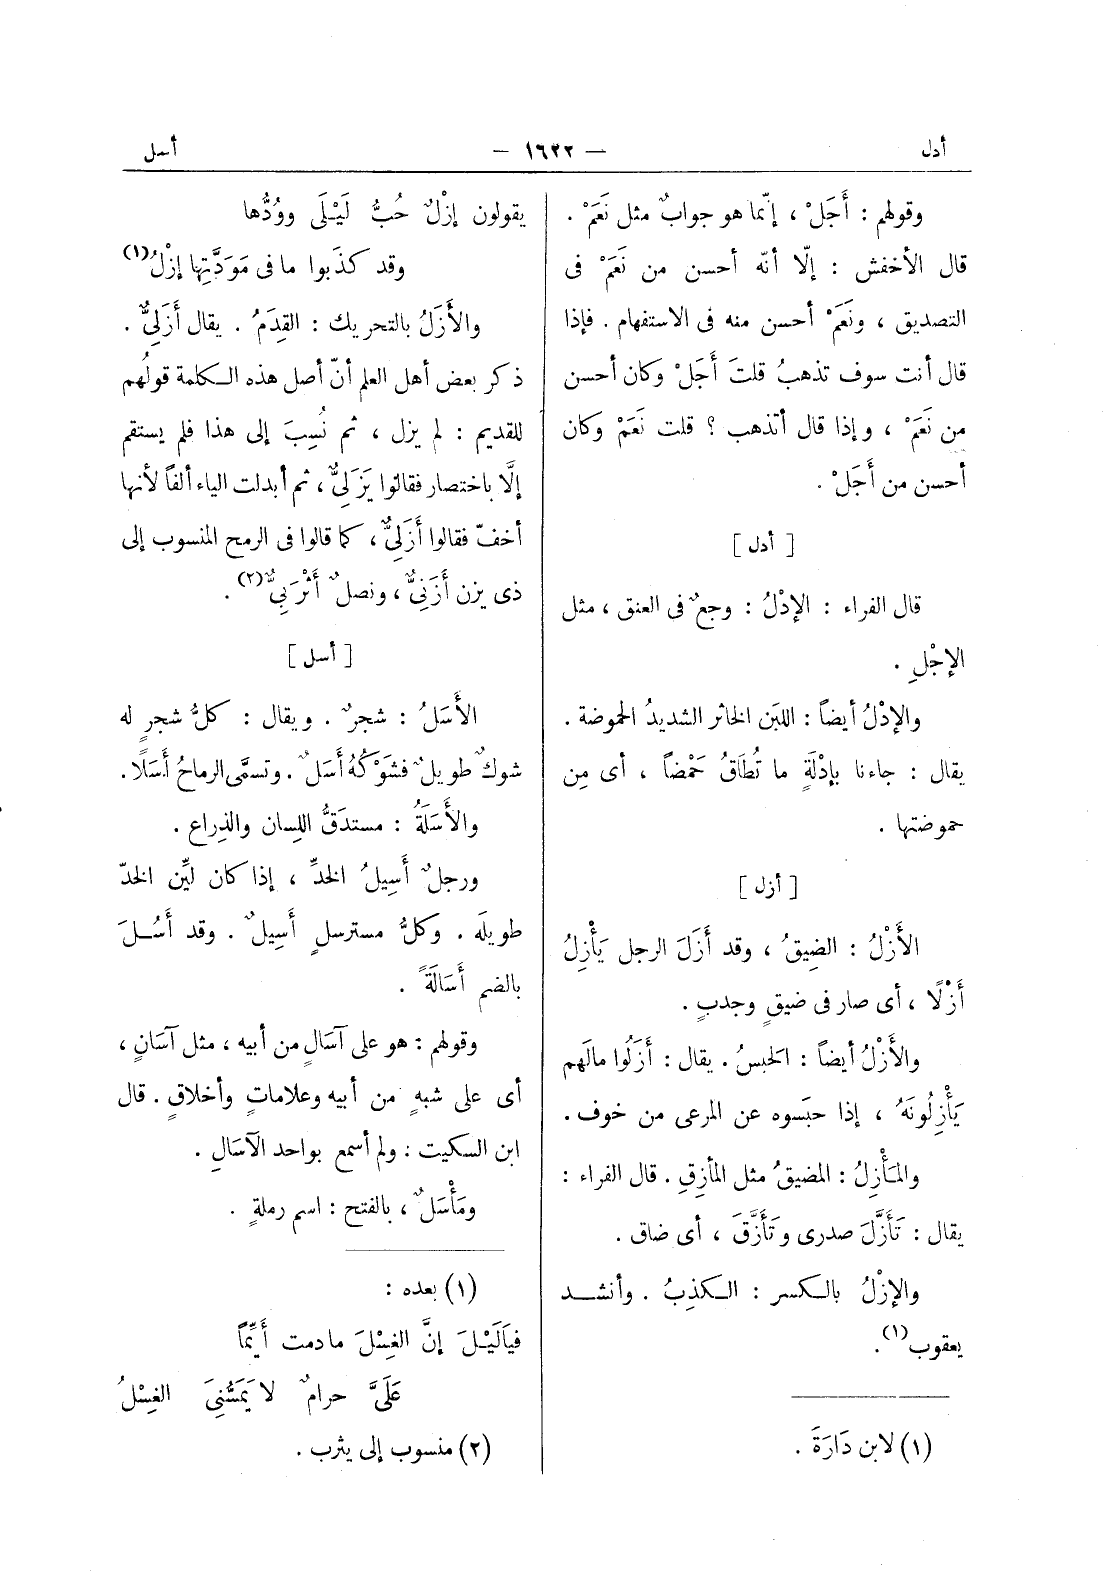 أدل — ١٦٢٢ — أسل
وقولهم : أَجَلْ ، إنّما هو جوابٌ مثل نَعَمْ .
قال الأخفش : إلّا أنّه أحسن من نَعَمْ فى
التصديق ، ونَعَمْ أحسن منه فى الاستفهام . فإذا
قال أنت سوف تذهبُ قلتَ أَجَلْ وكان أحسن
من نَعَمْ ، وإذا قال أتذهب ؟ قلت نَعَمْ وكان
أحسن من أَجَلْ .
[ أدل ]
قال الفراء : الإدْلُ : وجعٌ فى العنق ، مثل
الإجْلِ .
والإدْلُ أيضاً : اللبَن الخاثر الشديدُ الحموضة .
يقال : جاءنا بإدْلَةٍ ما تُطَاقُ حَمْضاً ، أى مِن
حموضتها .
[ أزل ]
الأَزْلُ : الضِيقُ ، وقد أَزَلَ الرجل يَأْزِلُ
أَزْلًا ، أى صار فى ضيقٍ وجدبٍ .
والأَزْلُ أيضاً : الحَبسُ . يقال : أَزَلُوا مالَهم
يَأْزِلُونَهُ ، إذا حبَسوه عن المرعى من خوف .
والمَأْزِلُ : المضيقُ مثل المأزِقِ . قال الفراء :
يقال : تَأَزَّلَ صدرى وتَأَزَّقَ ، أى ضاق .
والإزْلُ بالكسر : الكذِبُ . وأنشد
يعقوب(١) .
(١) لابن دَارَةَ .
يقولون إزْلٌ حُبُّ لَيْلَى ووُدُّها
وقد كذَبوا ما فى مَوَدَّتِها إزْلُ(١)
والأَزَلُ بالتحريك : القِدَمُ . يقال أَزَلِىٌّ .
ذكر بعض أهل العلم أنّ أصل هذه الكلمة قولُهم
للقديم : لم يزل ، ثم نُسِبَ إلى هذا فلم يستقم
إلَّا باختصار فقالوا يَزَلِىٌّ ، ثم أبدلت الياء ألفاً لأنها
أخفّ فقالوا أَزَلِىٌّ ، كما قالوا فى الرمح المنسوب إلى
ذى يزن أَزَنِىٌّ ، ونصلٌ أَثْرَبِىٌّ(٢) .
[ أسل ]
الأَسَلُ : شجرٌ . ويقال : كلُّ شجرٍ له
شوكٌ طويلٌ فشَوْكُهُ أَسَلٌ . وتسمَّى الرماحُ أسَلًا .
والأَسَلَةُ : مستدَقُّ اللسان والذِراع .
ورجلٌ أَسِيلُ الخدِّ ، إذا كان ليِّن الخدّ
طويلَه . وكلُّ مسترسلٍ أَسِيلٌ . وقد أَسُلَ
بالضم أَسَالَةً .
وقولهم : هو على آسَالٍ من أبيه ، مثل آسَانٍ ،
أى على شبهٍ من أبيه وعلاماتٍ وأخلاقٍ . قال
ابن السكيت : ولم أسمع بواحد الآسَالِ .
ومَأْسَلٌ ، بالفتح : اسم رملةٍ .
(١) بعده :
فيَاَلَيْلَ إنَّ الغِسْلَ مادمت أَيِّماً
عَلَىَّ حرامٌ لا يَمَسُّنِىَ الغِسْلُ
(٢) منسوب إلى يثرب .